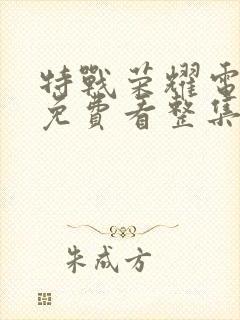 特戰荣耀電
免費看整集
朱成方